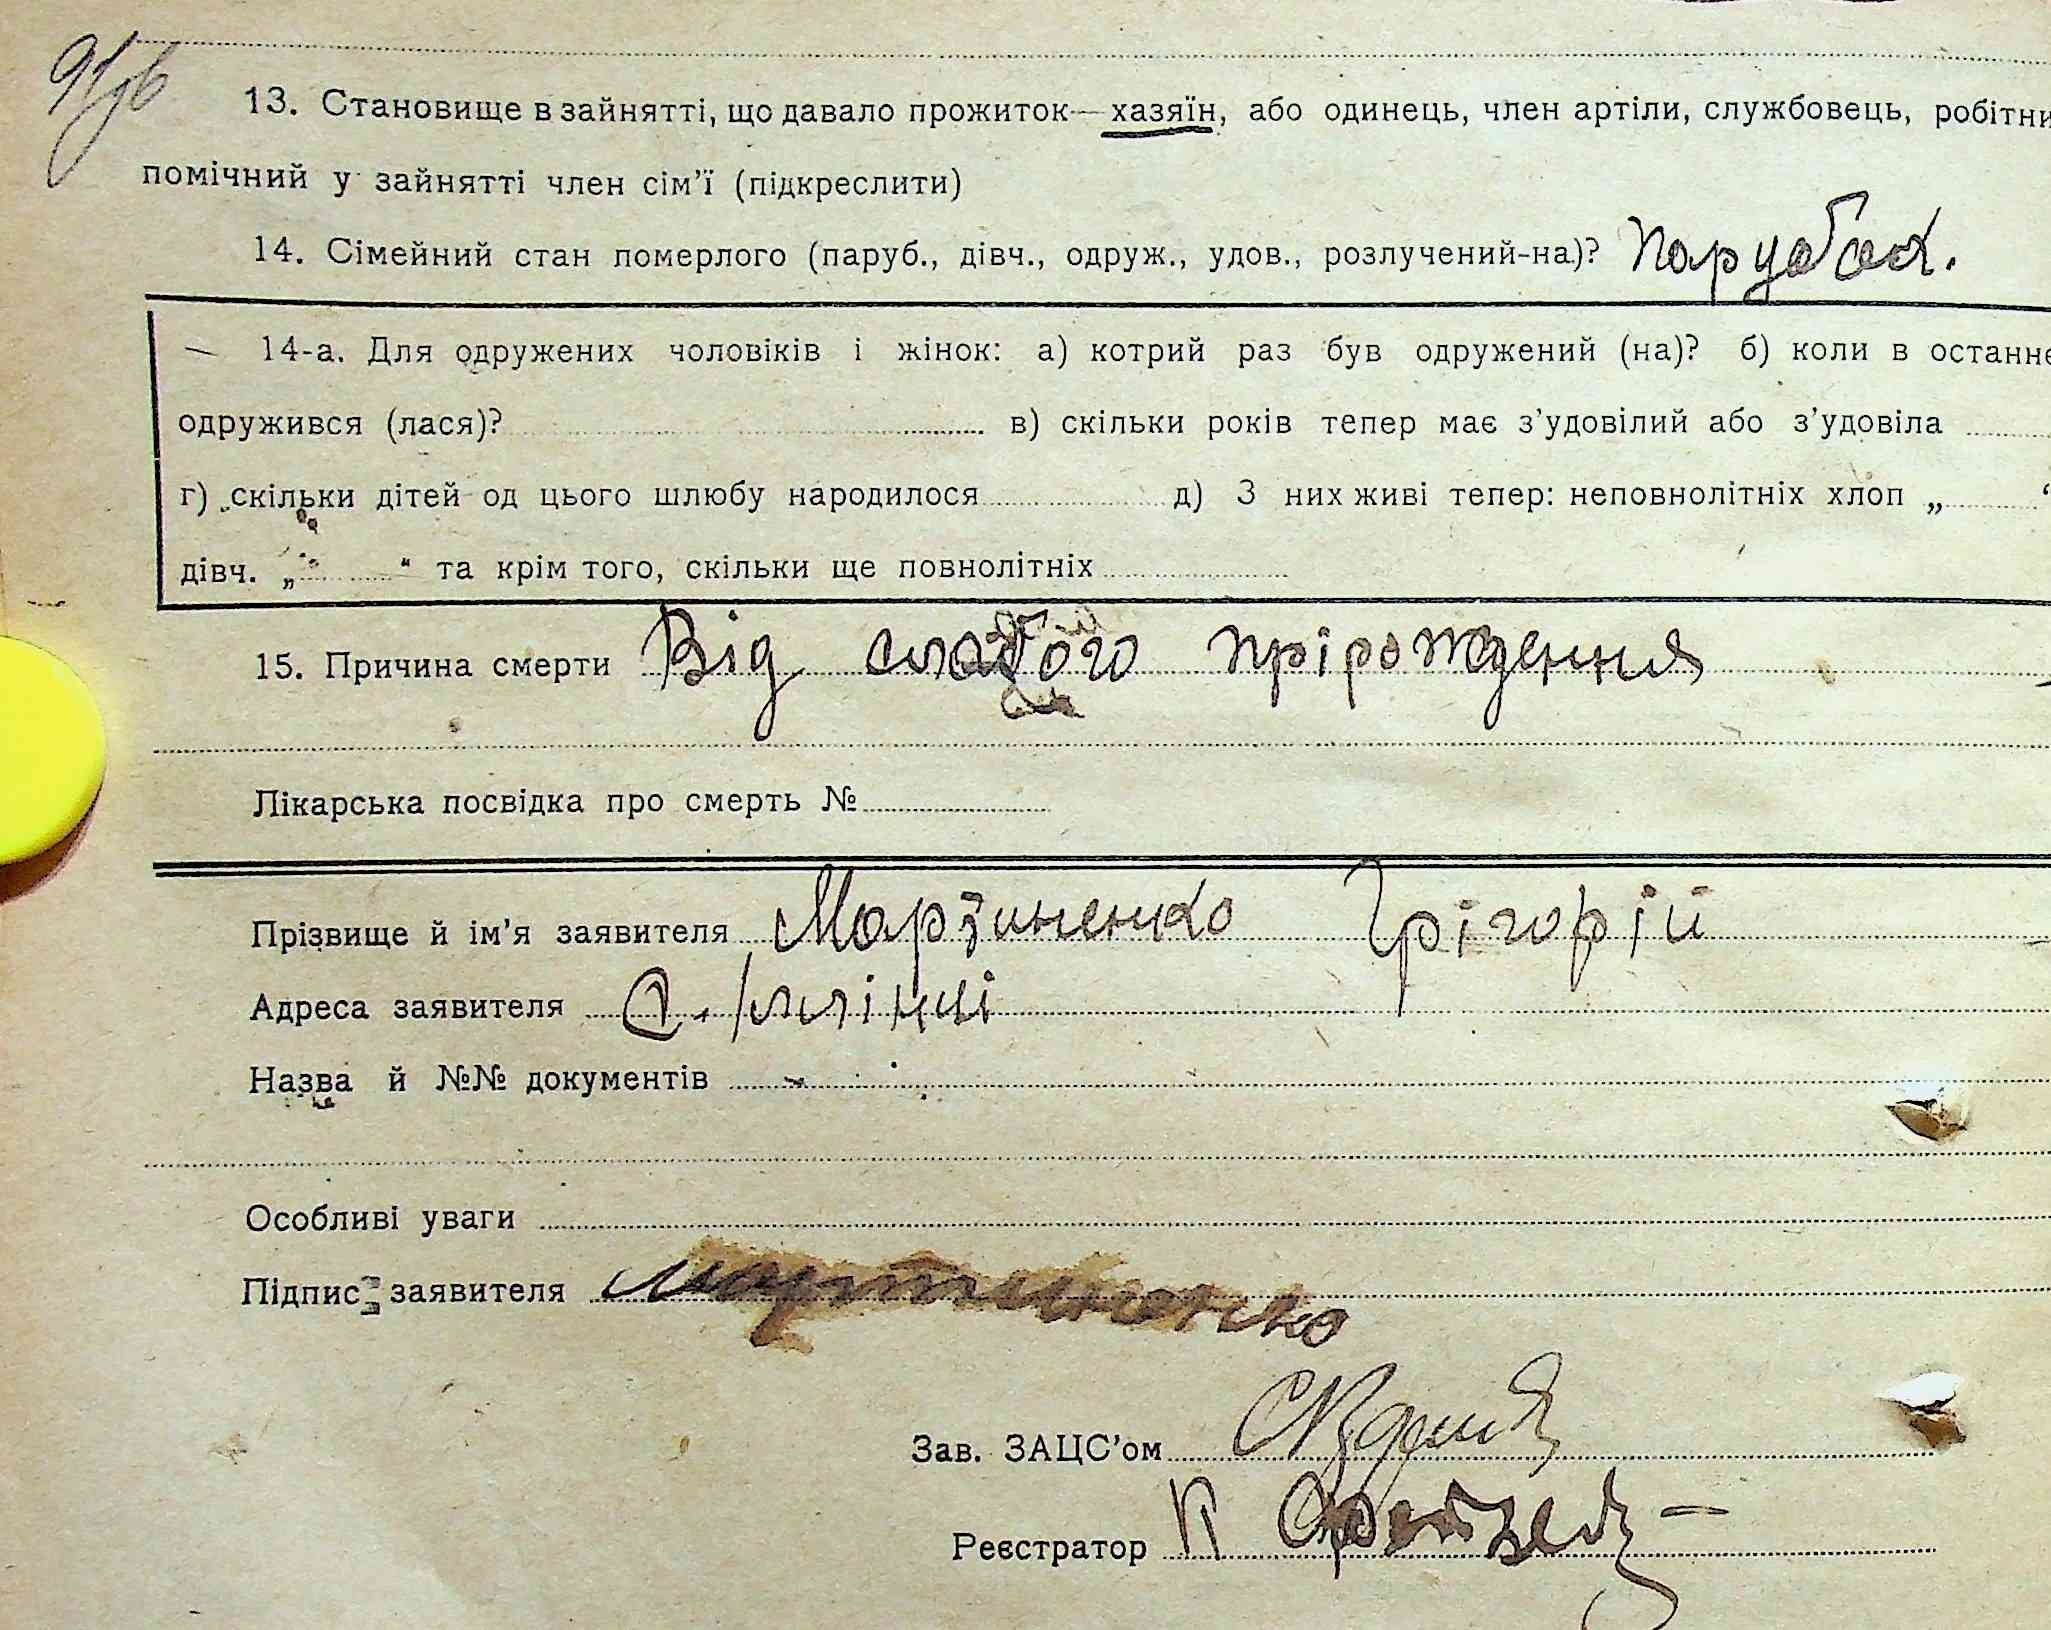 13. Становище в зайнятті, що давало прожиток — хазяїн, або одинець, член артіли, службовець, робітни
помічний у зайнятті член сім’ї (підкреслити)
14. Сімейний стан померлого (паруб., дівч., одруж., удов., розлучений-на)? Парубок.
— 14-а. Для одружених чоловіків і жінок: а) котрий раз був одружений (на)? б) коли в останнє
одружився (лася)? в) скільки років тепер має з’удовілий або з’удовіла
г) скільки дітей од цього шлюбу народилося д) З них живі тепер: неповнолітніх хлоп „ “
дівч. „ “ та крім того, скільки ще повнолітніх
15. Причина смерти Від слабого прірождення
Лікарська посвідка про смерть №
Прізвище й ім’я заявителя Мартиненко Грігорій
Адреса заявителя с.
Назва й №№ документів
Особливі уваги
Підпис заявителя Мартиненко
Зав. ЗАЦС’ом
Реєстратор